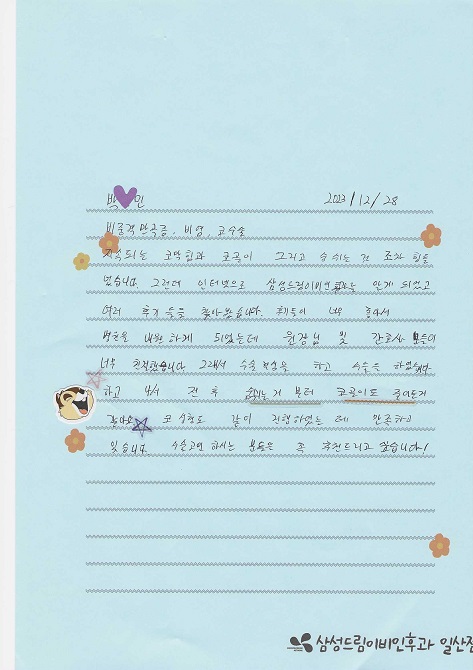 박 민 2023/12/28
비중격만곡증, 비염, 코수술
지속되는 코막힘과 코골이 그리고 숨 쉬는 것 조차 힘들
었습니다 그런데 인터넷으로 삼성드림이비인후과를 알게 되었고
여러 후기들을 찾아봤습니다. 후기들이 너무 좋아서
병원을 내원하게 되었는데 원장님 및 간호사 분들이
너무 친절했습니다 그래서 수술 을 하고 수술을 하였습니다
하고 나서 전 후 숨쉬는거 부터 코골이도 줄어든거
같아요 코 성형도 같이 진행하였는데 만족하고
있습니다 수술고민 하시는 분들은 꼭 추천드리고 싶습니다!
삼성드림이비인후과 일산점